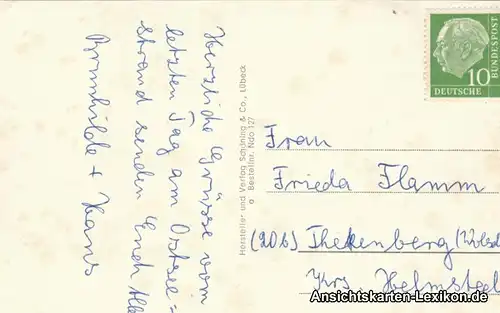 Herzliche Grüsse vom
letzten Tag am Ostsee=
strand senden Euch
Brunhilde + Hans
Hersteller und Verlag Schöning & Co., Lübeck
Bestellnr. Ndo 127
10
DEUTSCHE
BUNDESPOST
Frau
Frieda Flamm
(20b)
Krs. Helmste
Ansichtskarten-Lexikon.de